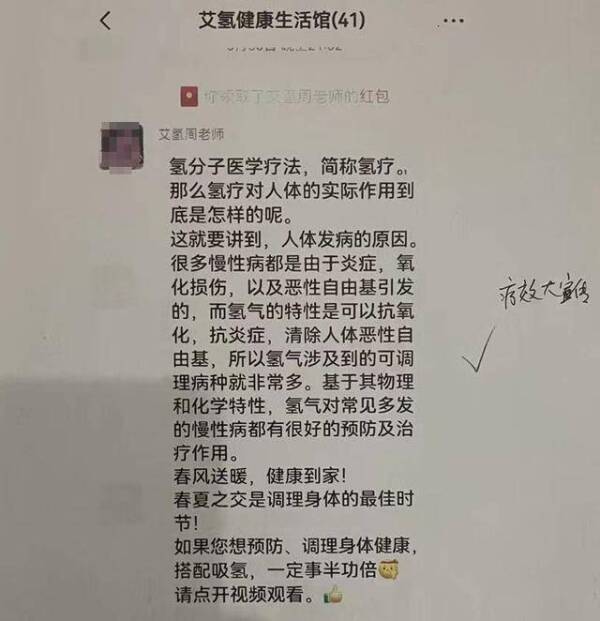 艾氢健康生活馆(41)
你领取了艾氢周老师的红包
艾氢周老师
氢分子医学疗法，简称氢疗。,
那么氢疗对人体的实际作用到
底是怎样的呢。
这就要讲到，人体发病的原因。
很多慢性病都是由于炎症，氧
化损伤，以及恶性自由基引发
的，而氢气的特性是可以抗氧
化，抗炎症，清除人体恶性自
由基，所以氢气涉及到的可调
理病种就非常多。基于其物理
和化学特性，氢气对常见多发
的慢性病都有很好的预防及治
疗作用。
春风送暖，健康到家！
春夏之交是调理身体的最佳时
节！
如果您想预防、调理身体健康，
搭配吸氢，一定事半功倍
请点开视频观看。
疗效大宣传